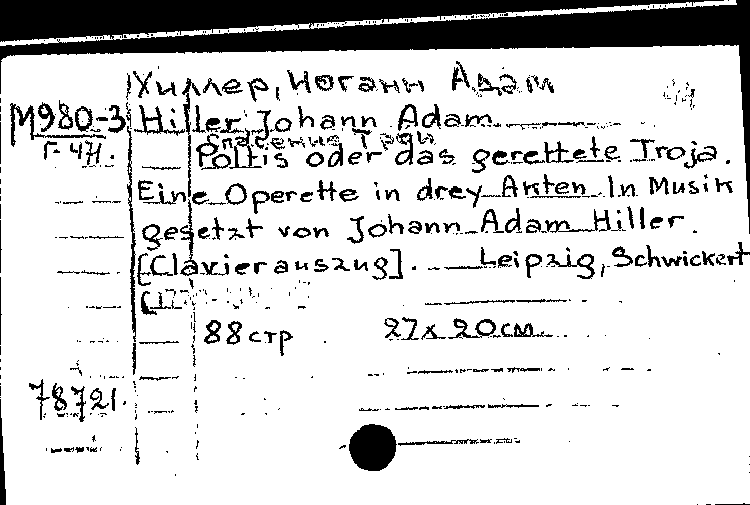 Хиллер, Иоганн Адам
М980-3 Hiller Johann Adam
Г-471. Спасение Трои
Poltis oder das gerettete Troja.
Eine Operette in drey Akten In Musik
gesetzt von Johann Adam Hiller.
[Clavierauszug]. Leipzig, Schwickert
88 стр 27 x 20 см.
78721.